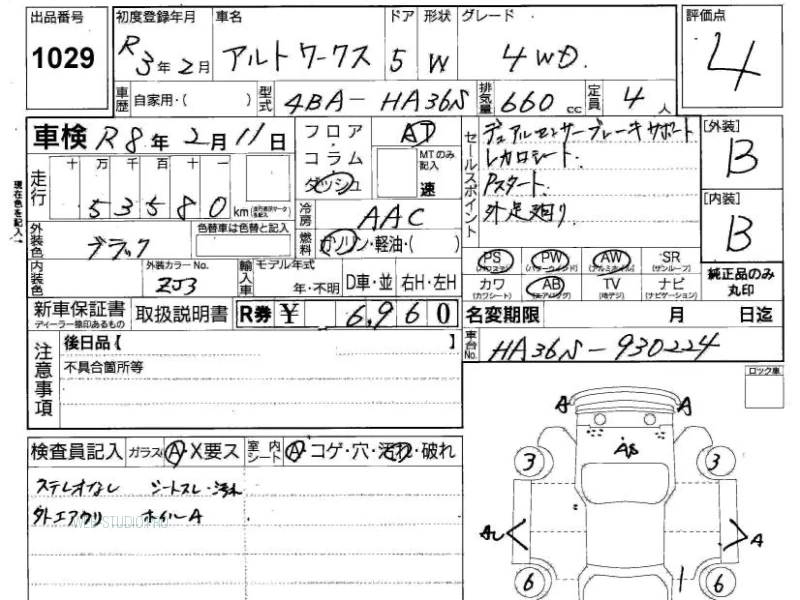 出品番号 初度登録年月 車名 ドア 形状 グレード 評価点
1029 R3年2月 アルトワークス 5 W 4WD. 4
車歴 自家用・( ) 型式 4BA-HA36S 排気量 660 cc 定員 4 人
車検 R8年2月11日 フロア・コラム ダッシュ AT MTのみ記入 速
走行 十 万 千 百 十 一
53580 km (走行距離データを記入)
現在色を記入↓
冷房 AAC
外装色 ブラック 色替車は色替と記入 燃料 ガソリン・軽油・( )
内装色 外装カラーNo. ZJ3 輸入車 モデル年式 年・不明 D車・並 右H・左H
セールスポイント デュアルセンサーブレーキサポート
レカロシート.
Pスタート.
外足廻り
[外装] B
[内装] B
PS (パワステ) PW (パワーウインド) AW (アルミホイル) SR (サンルーフ)
カワ (カワシート) AB (エアバッグ) TV (地デジ) ナビ (ナビゲーション)
純正品のみ丸印
新車保証書 ディーラー捺印あるもの 取扱説明書 R券 ¥ 6,960
名変期限 月 日迄
注意事項 後日品【 】
不具合箇所等
車台No. HA36S-930224
ロック車
検査員記入 ガラス A・X要ス 室内シート A・コゲ・穴・汚れ・破れ
ステレオなし シートスレ・汚れ
外エアクリ ホイルA
WEB-STUDIO.PRO
A A
A8
3 3
A A
6 6